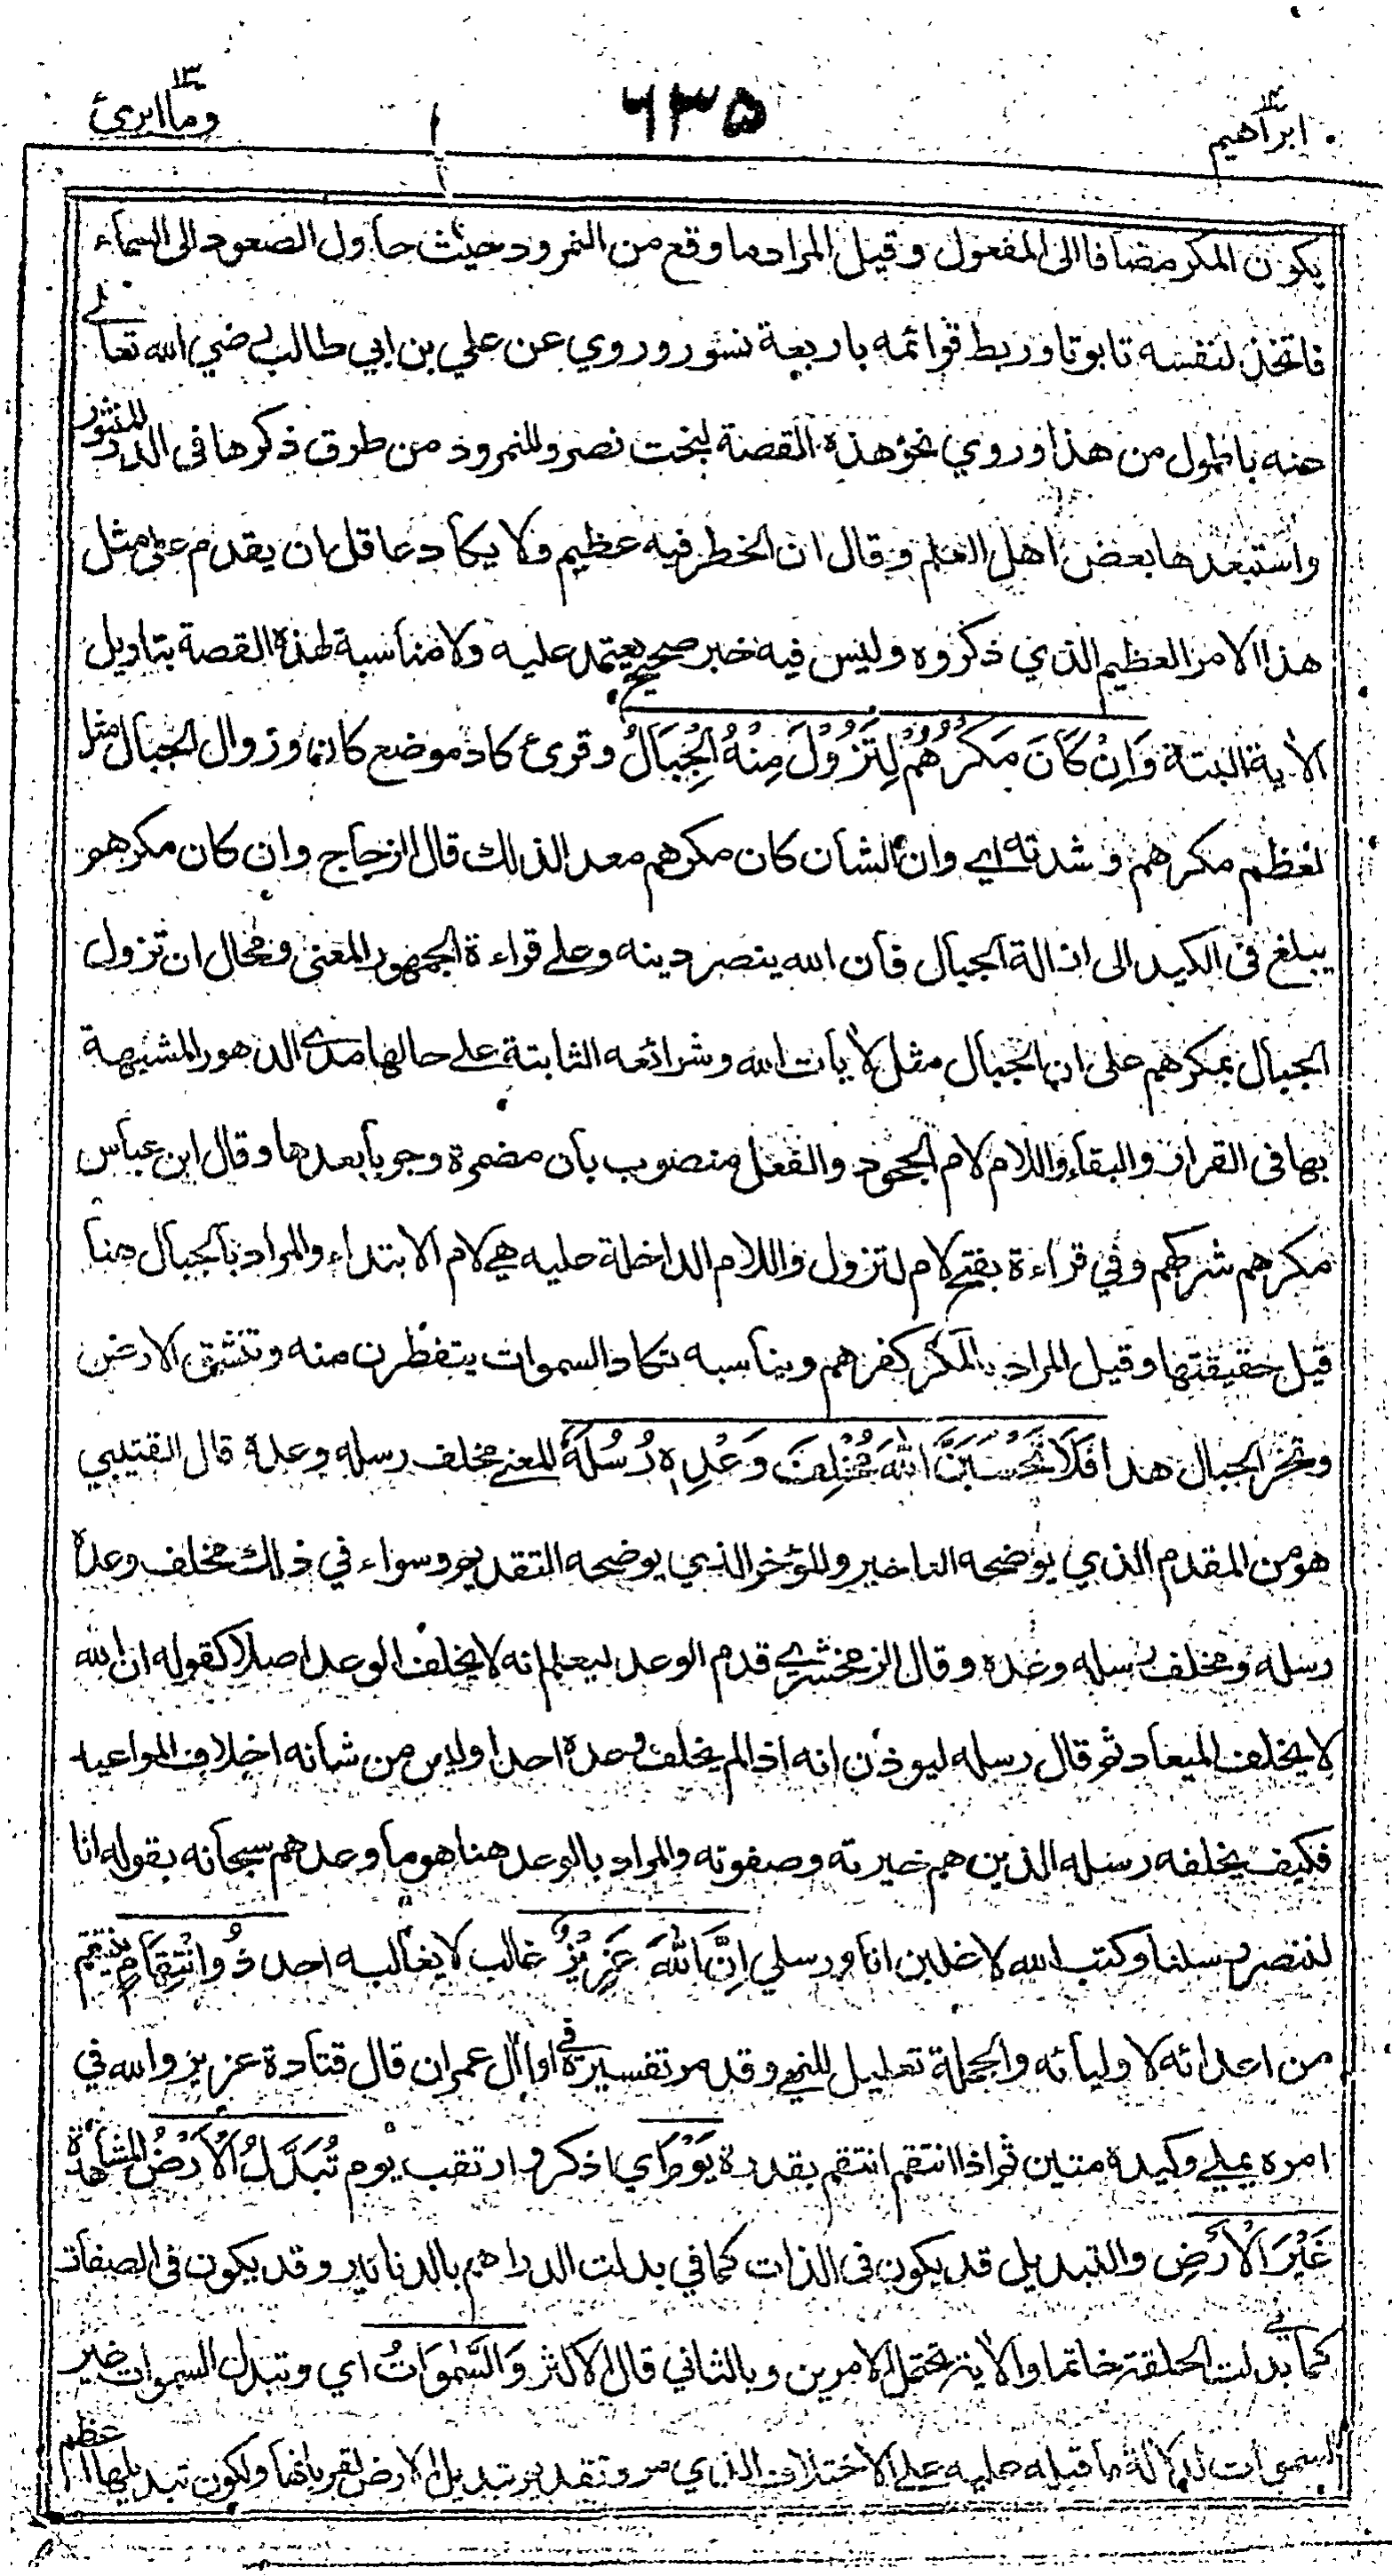 ابراهيم ١٤
٦٣٥
وما ابرئ ١٣
يكون المكر مضافا الى المفعول وقيل المراد ما وقع من النمرود حيث حاول الصعود الى السماء
فاتخذ لنفسه تابوتا وربط قوائمه باربعة نسور وروي عن علي بن ابي طالب رضي الله تعالى
عنه باطول من هذا وروي نحو هذه القصة لبخت نصر وللنمرود من طرق ذكرها فى الدر المنثور
واستبعدها بعض اهل العلم وقال ان الخطر فيه عظيم ولا يكاد عاقل ان يقدم على مثل
هذا الامر العظيم الذي ذكروه وليس فيه خبر صحيح يعتمد عليه ولا مناسبة لهذه القصة بتاويل
الأية البتة وَاِنْ كَانَ مَكْرُهُمْ لِتَزُوْلَ مِنْهُ الْجِبَالُ وقرئ كاد موضع كان وزوال الجبال مثل
لعظم مكرهم وشدته اي وان الشان كان مكرهم معد الذلك قال الزجاج وان كان مكرهم
يبلغ فى الكيد الى ازالة الجبال فان الله ينصر دينه وعلى قراءة الجمهور المعنى ومحال ان تزول
الجبال بمكرهم على ان الجبال مثل لأيات الله وشرائعه الثابتة على حالها مدى الدهور المشبهة
بها فى القرار والبقاء واللام لام الجحود والفعل منصوب بان مضمرة وجوبا بعدها وقال ابن عباس
مكرهم شركهم وفي قراءة بفتح لام لتزول واللام الداخلة عليه هي لام الابتداء والمراد بالجبال هنا
قيل حقيقتها وقيل المراد بالمكر كفرهم ويناسبه تكاد السموات يتفطرن منه وتنشق الارض
وتخر الجبال هدا فَلَا تَحْسَبَنَّ اللّٰهَ مُخْلِفَ وَعْدِهٖ رُسُلَهٗ المعنى مخلف رسله وعده قال القتيبي
هو من المقدم الذي يوضحه التاخير والمؤخر الذي يوضحه التقديم وسواء في ذلك مخلف وعده
رسله ومخلف رسله وعده وقال الزمخشري قدم الوعد ليعلم انه لا يخلف الوعد اصلا كقوله ان الله
لا يخلف الميعاد ثم قال رسله ليوذن انه اذا لم يخلف وعده احدا وليس من شانه اخلاف المواعيد
فكيف يخلفه رسله الذين هم خيرته وصفوته والمراد بالوعد هنا هو ما وعدهم سبحانه بقوله انا
لننصر رسلنا وكتب الله لاغلبن انا ورسلي اِنَّ اللّٰهَ عَزِيْزٌ غالب لا يغالبه احد ذُو انْتِقَامٍ ينتقم
من اعدائه لاوليائه والجملة تعليل للنهي وقد مر تفسيره في اول ال عمران قال قتادة عزيز والله في
امره يملي وكيده متين ثم اذا انتقم انتقم بقدرة يَوْمَ اي اذكر وارتقب يوم تُبَدَّلُ الْاَرْضُ المشاهدة
غَيْرَ الْاَرْضِ والتبديل قد يكون فى الذات كما في بدلت الدراهم بالدنانير وقد يكون فى الصفات
كما في بدلت الحلقة خاتما والأية تحتمل الامرين وبالثاني قال الاكثر وَالسَّمٰوَاتُ اي وتبدل السموات غير
السموات لدلالة ما قبله عليه على الاختلاف الذي مر وتقديم تبديل الارض لقربها منا ولكون تبديلها اعظم